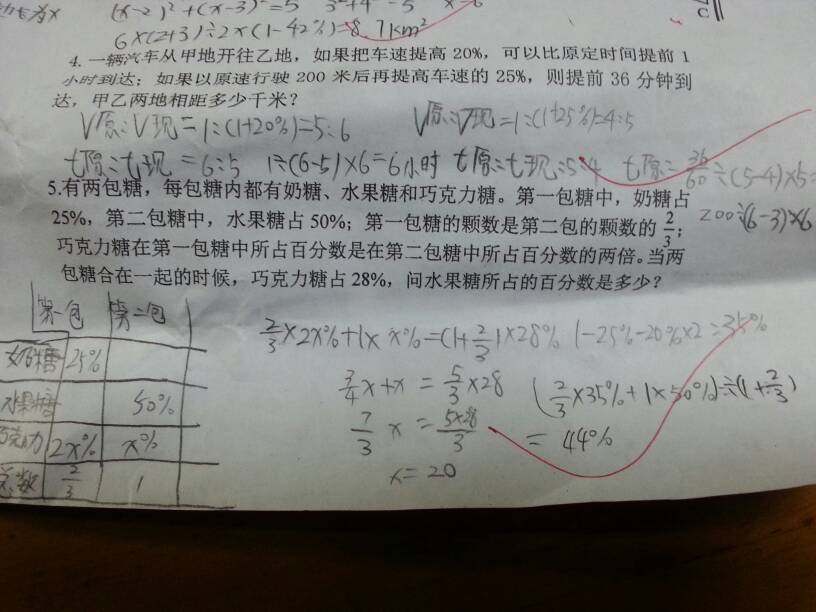 (x-2)²+(x-3)²=5 3²+4²=5 x=6
6×(2+3)÷2×(1-42%)=8.7km²
4. 一辆汽车从甲地开往乙地，如果把车速提高 20%，可以比原定时间提前 1
小时到达；如果以原速行驶 200 米后再提高车速的 25%，则提前 36 分钟到
达，甲乙两地相距多少千米？
V原:V现=1:(1+20%)=5:6 V原:V现=1:(1+25%)=4:5
t原:t现=6:5 1÷(6-5)×6=6小时 t原:t现=5:4 t原=36/60÷(5-4)×5=
200÷(6-3)×6
5.有两包糖，每包糖内都有奶糖、水果糖和巧克力糖。第一包糖中，奶糖占
25%，第二包糖中，水果糖占 50%；第一包糖的颗数是第二包的颗数的 2/3；
巧克力糖在第一包糖中所占百分数是在第二包糖中所占百分数的两倍。当两
包糖合在一起的时候，巧克力糖占 28%，问水果糖所占的百分数是多少？
第一包 第二包
奶糖 25%
水果糖 50%
巧克力 2x% x%
总数 2/3 1
2/3×2x%+1×x%=(1+2/3)×28% 1-25%-20%×2=35%
3/4x+x=5/3×28 (2/3×35%+1×50%)÷(1+2/3)
7/3x=5×28/3 =44%
x=20